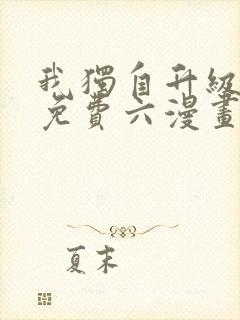 我獨自升級
免費六漫畫
夏末